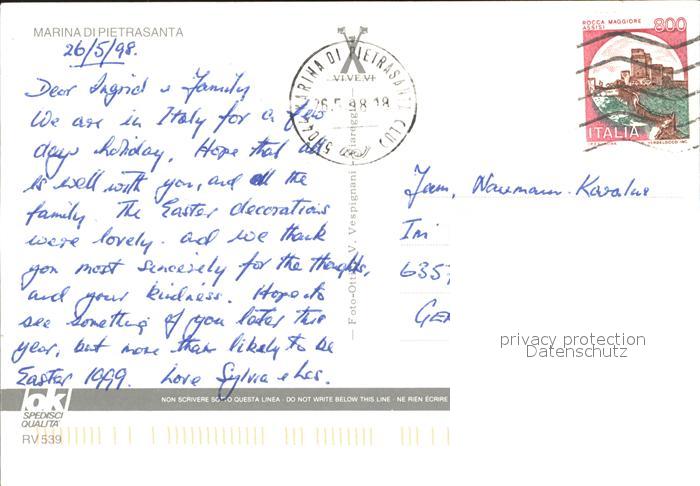 MARINA DI PIETRASANTA
26/5/98.
Dear Ingrid & Family
We are in Italy for a few
days holiday, Hope that all
is well with you, and all the
family. The Easter decorations
were lovely. and we thank
you most sincerely for the thoughts,
and your kindness. Hope to
see something of you later this
year, but more than likely to be
Easter 1999. Love Sylvia & Les.
lok
SPEDISCI
QUALITA'
RV 539
NON SCRIVERE SOTTO QUESTA LINEA - DO NOT WRITE BELOW THIS LINE - NE RIEN ÉCRIRE
VI.VE.VI
Foto-Ott. V. Vespignani - Viareggio
MARINA DI PIETRASANTA (LU)
26.5.98.18
ROCCA MAGGIORE
ASSISI
800
ITALIA
Fam, Naumann-Karalus
Im
6357
GER
privacy protection
Datenschutz